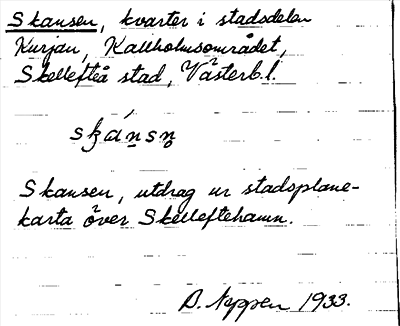 Skansen, kvarter i stadsdelen
Kurjan, Kallholmsområdet,
Skellefteå stad, Västerb.l.
skánsn̥
Skansen, utdrag ur stadsplane-
karta över Skelleftehamn.
D. Nyppen 1933.